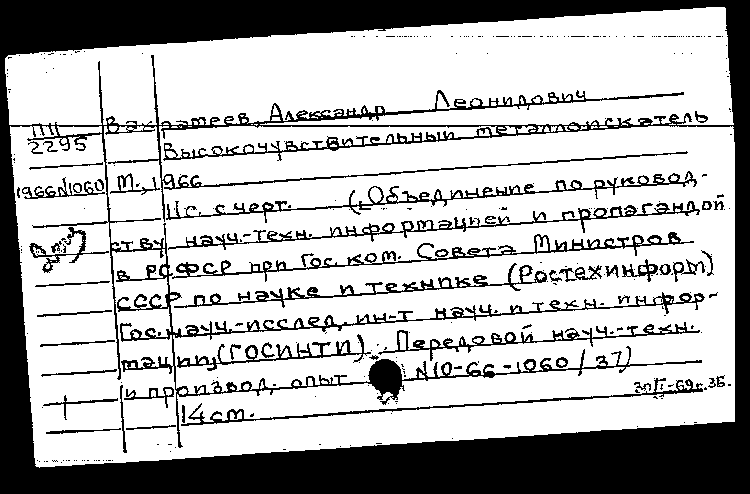 ПП
2295
Вахратеев, Александр Леонидович
Высокочувствительный металлоискатель
1966N1060 М., 1966
11с. с черт. (Объединение по руковод-
ству науч.-техн. информацией и пропагандой
в РСФСР при Гос. ком. Совета Министров
СССР по науке и технике (Ростехинформ)
Гос. науч.-исслед. ин-т науч. и техн. инфор-
мации (ГОСИНТИ). Передовой науч.-техн.
и производ. опыт N10-66-1060/37)
14 см.